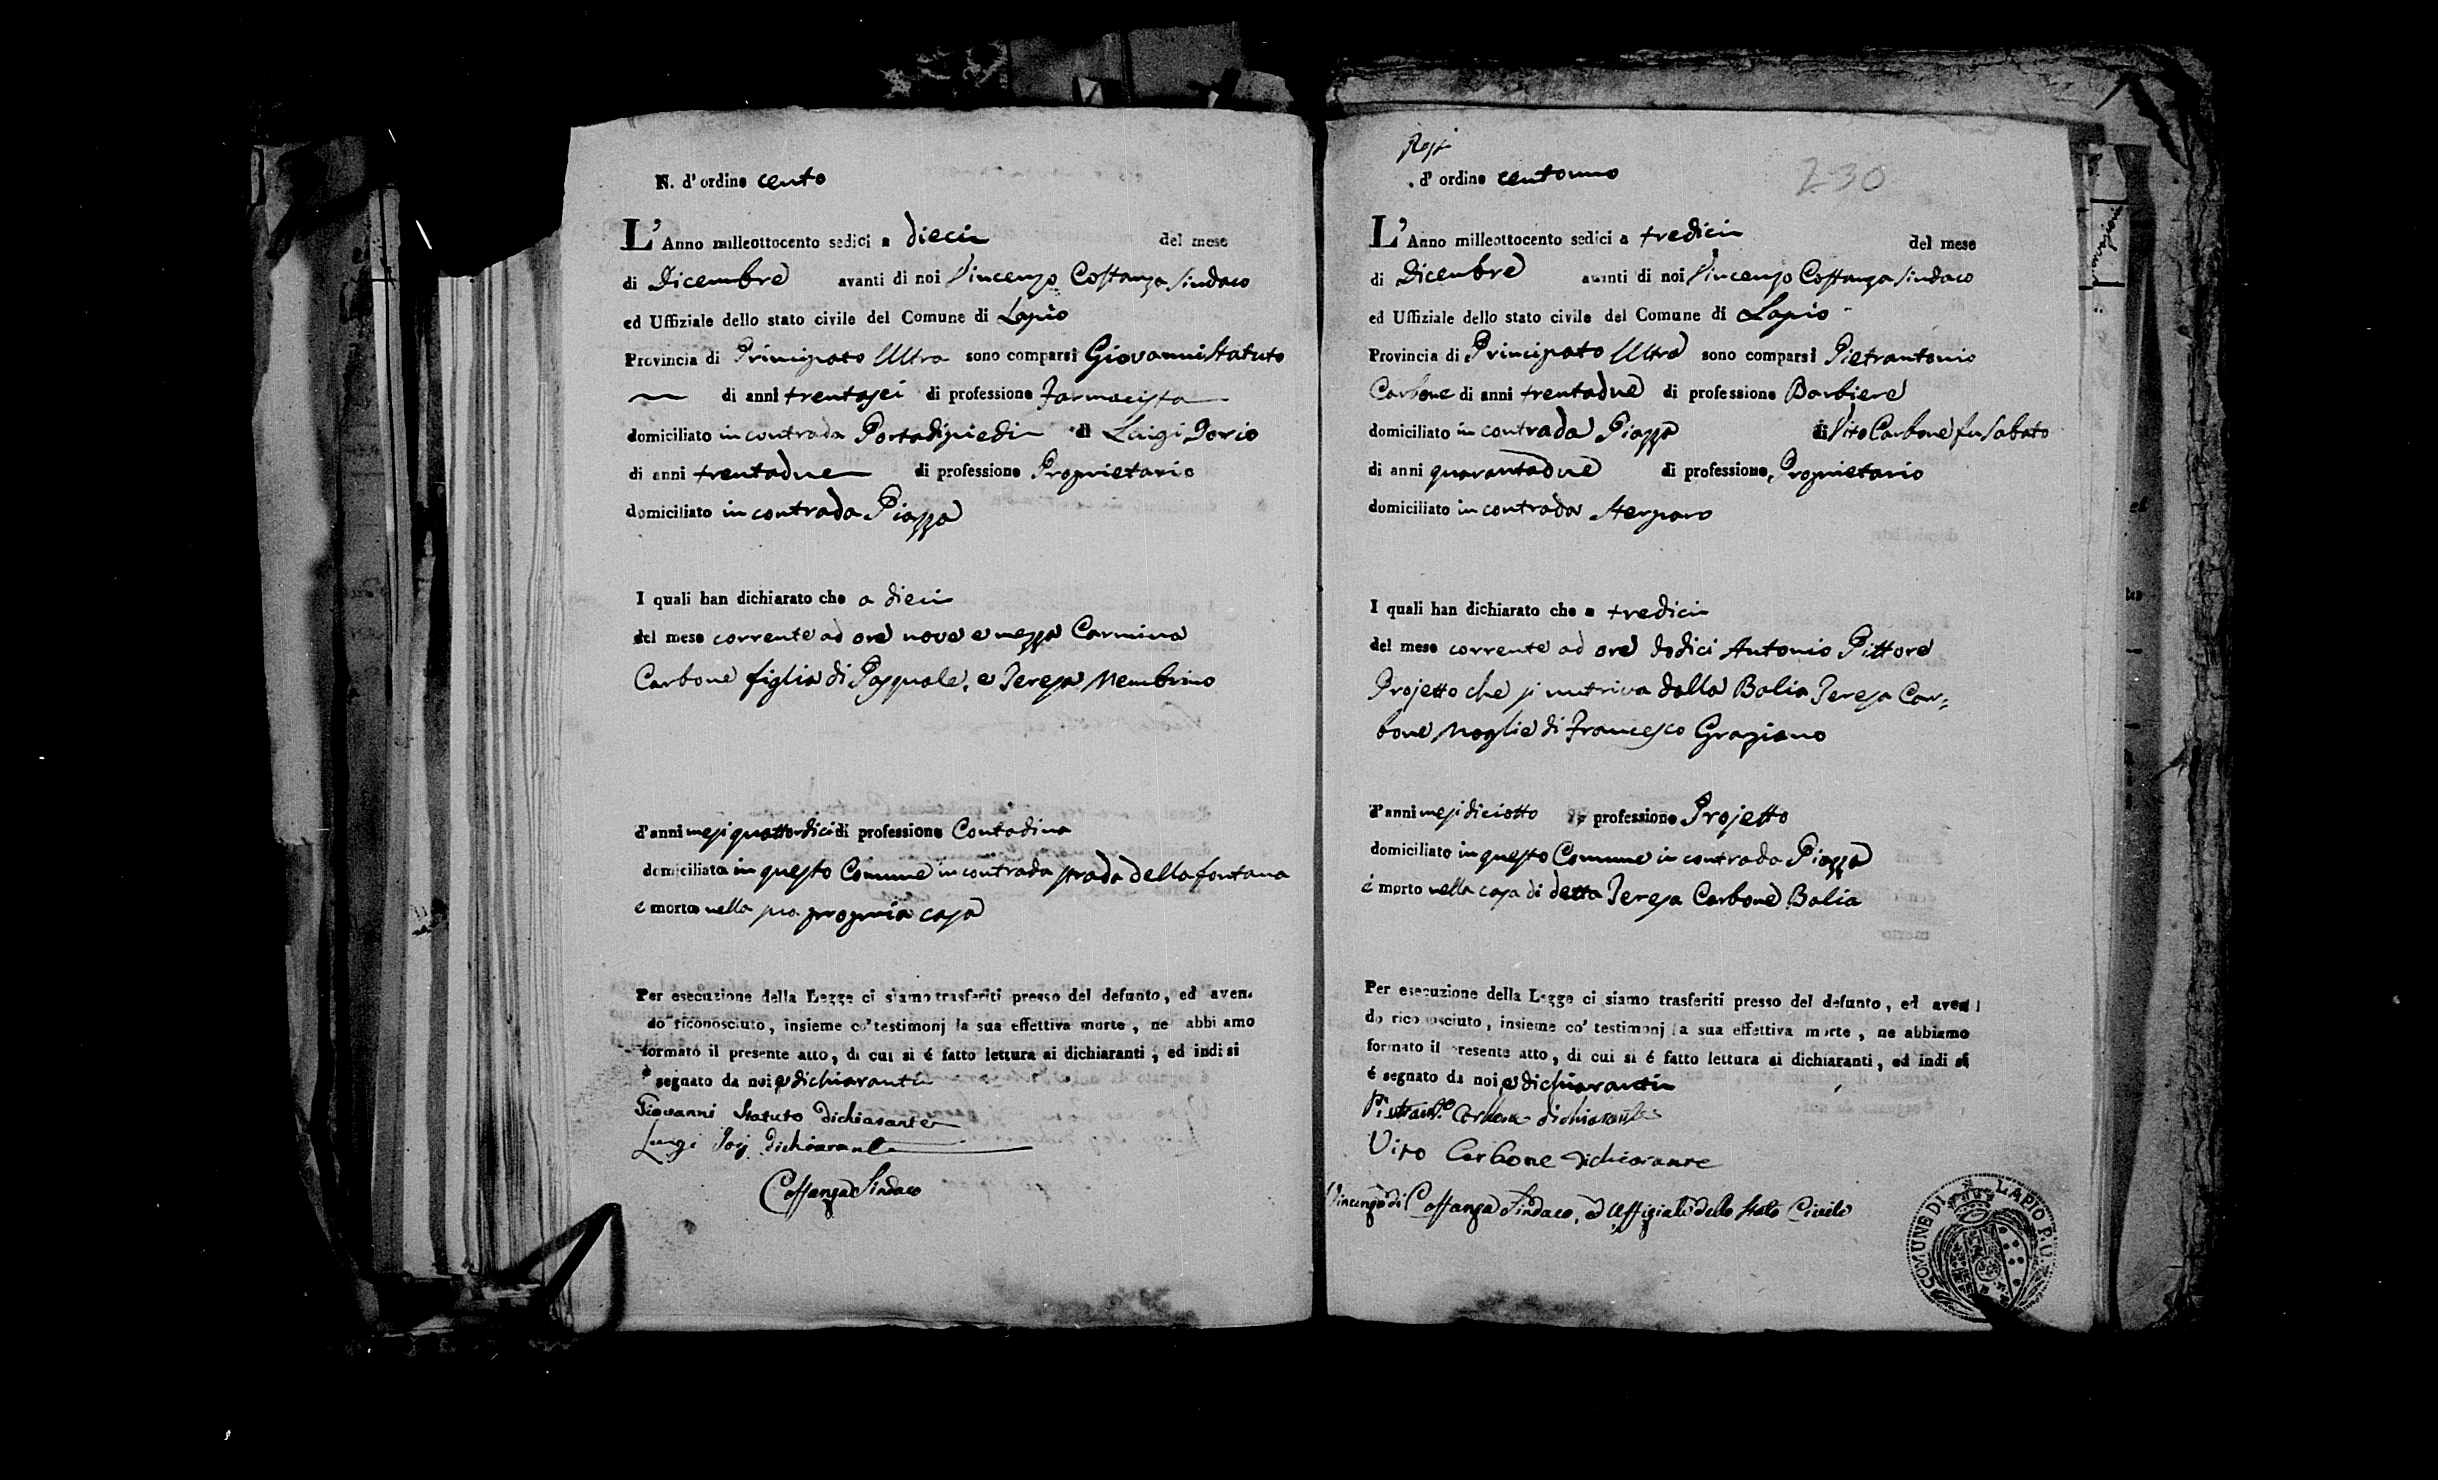 N. d' ordine cento
L' Anno milleottocento sedici a dieci del mese
di Dicembre avanti di noi Vincenzo Costanza Sindaco
ed Uffiziale dello stato civile del Comune di Lapio
Provincia di Principato Ultra sono comparsi Giovanni Statuto
di anni trentasei di professione Farmacista
domiciliato in contrada Portadipiedi di Luigi Dorio
di anni trentadue di professione Proprietario
domiciliato in contrada Piazza
I quali han dichiarato che a dieci
del mese corrente ad ore nove e mezza Carmina
Carbone figlia di Pasquale, e Teresa Membrino
d'anni mesi quattordici di professione Contadina
domiciliata in questo Comune in contrada strada della fontana
e morta nella sua propria casa
Per esecuzione della Legge ci siamo trasferiti presso del defunto, ed aven-
do riconosciuto, insieme co' testimonj la sua effettiva morte, ne abbi amo
formato il presente atto, di cui si é fatto lettura ai dichiaranti, ed indi si
é segnato da noi e dichiaranti
Giovanni Statuto dichiarante
Luigi dichiarante
Costanza Sindaco
. d' ordine centouno
230
L' Anno milleottocento sedici a tredici del mese
di Dicembre avanti di noi Vincenzo Costanza Sindaco
ed Uffiziale dello stato civile del Comune di Lapio
Provincia di Principato Ultra sono comparsi Pietrantonio
Carbone di anni trentadue di professione Barbiere
domiciliato in contrada Piazza di Vito Carbone fu Sabato
di anni quarantadue di professione Proprietario
domiciliato in contrada Sterparo
I quali han dichiarato che a tredici
del mese corrente ad ore dodici Antonio Pittore
Projetto che si nutriva dalla Balia Teresa Car-
bone Moglie di Francesco Graziano
d'anni mesi diciotto di professione Projetto
domiciliato in questo Comune in contrada Piazza
é morto nella casa di detta Teresa Carbone Balia
Per esecuzione della Legge ci siamo trasferiti presso del defunto, ed aven
do riconosciuto, insieme co' testimonj la sua effettiva morte, ne abbiamo
formato il presente atto, di cui si é fatto lettura ai dichiaranti, ed indi si
é segnato da noi e dichiaranti
Pietrant.o Carbone dichiarante
Vito Carbone dichiarante
Vincenzo di Costanza Sindaco, ed Uffiziale dello Stato Civile
COMUNE DI LAPIO P.U.